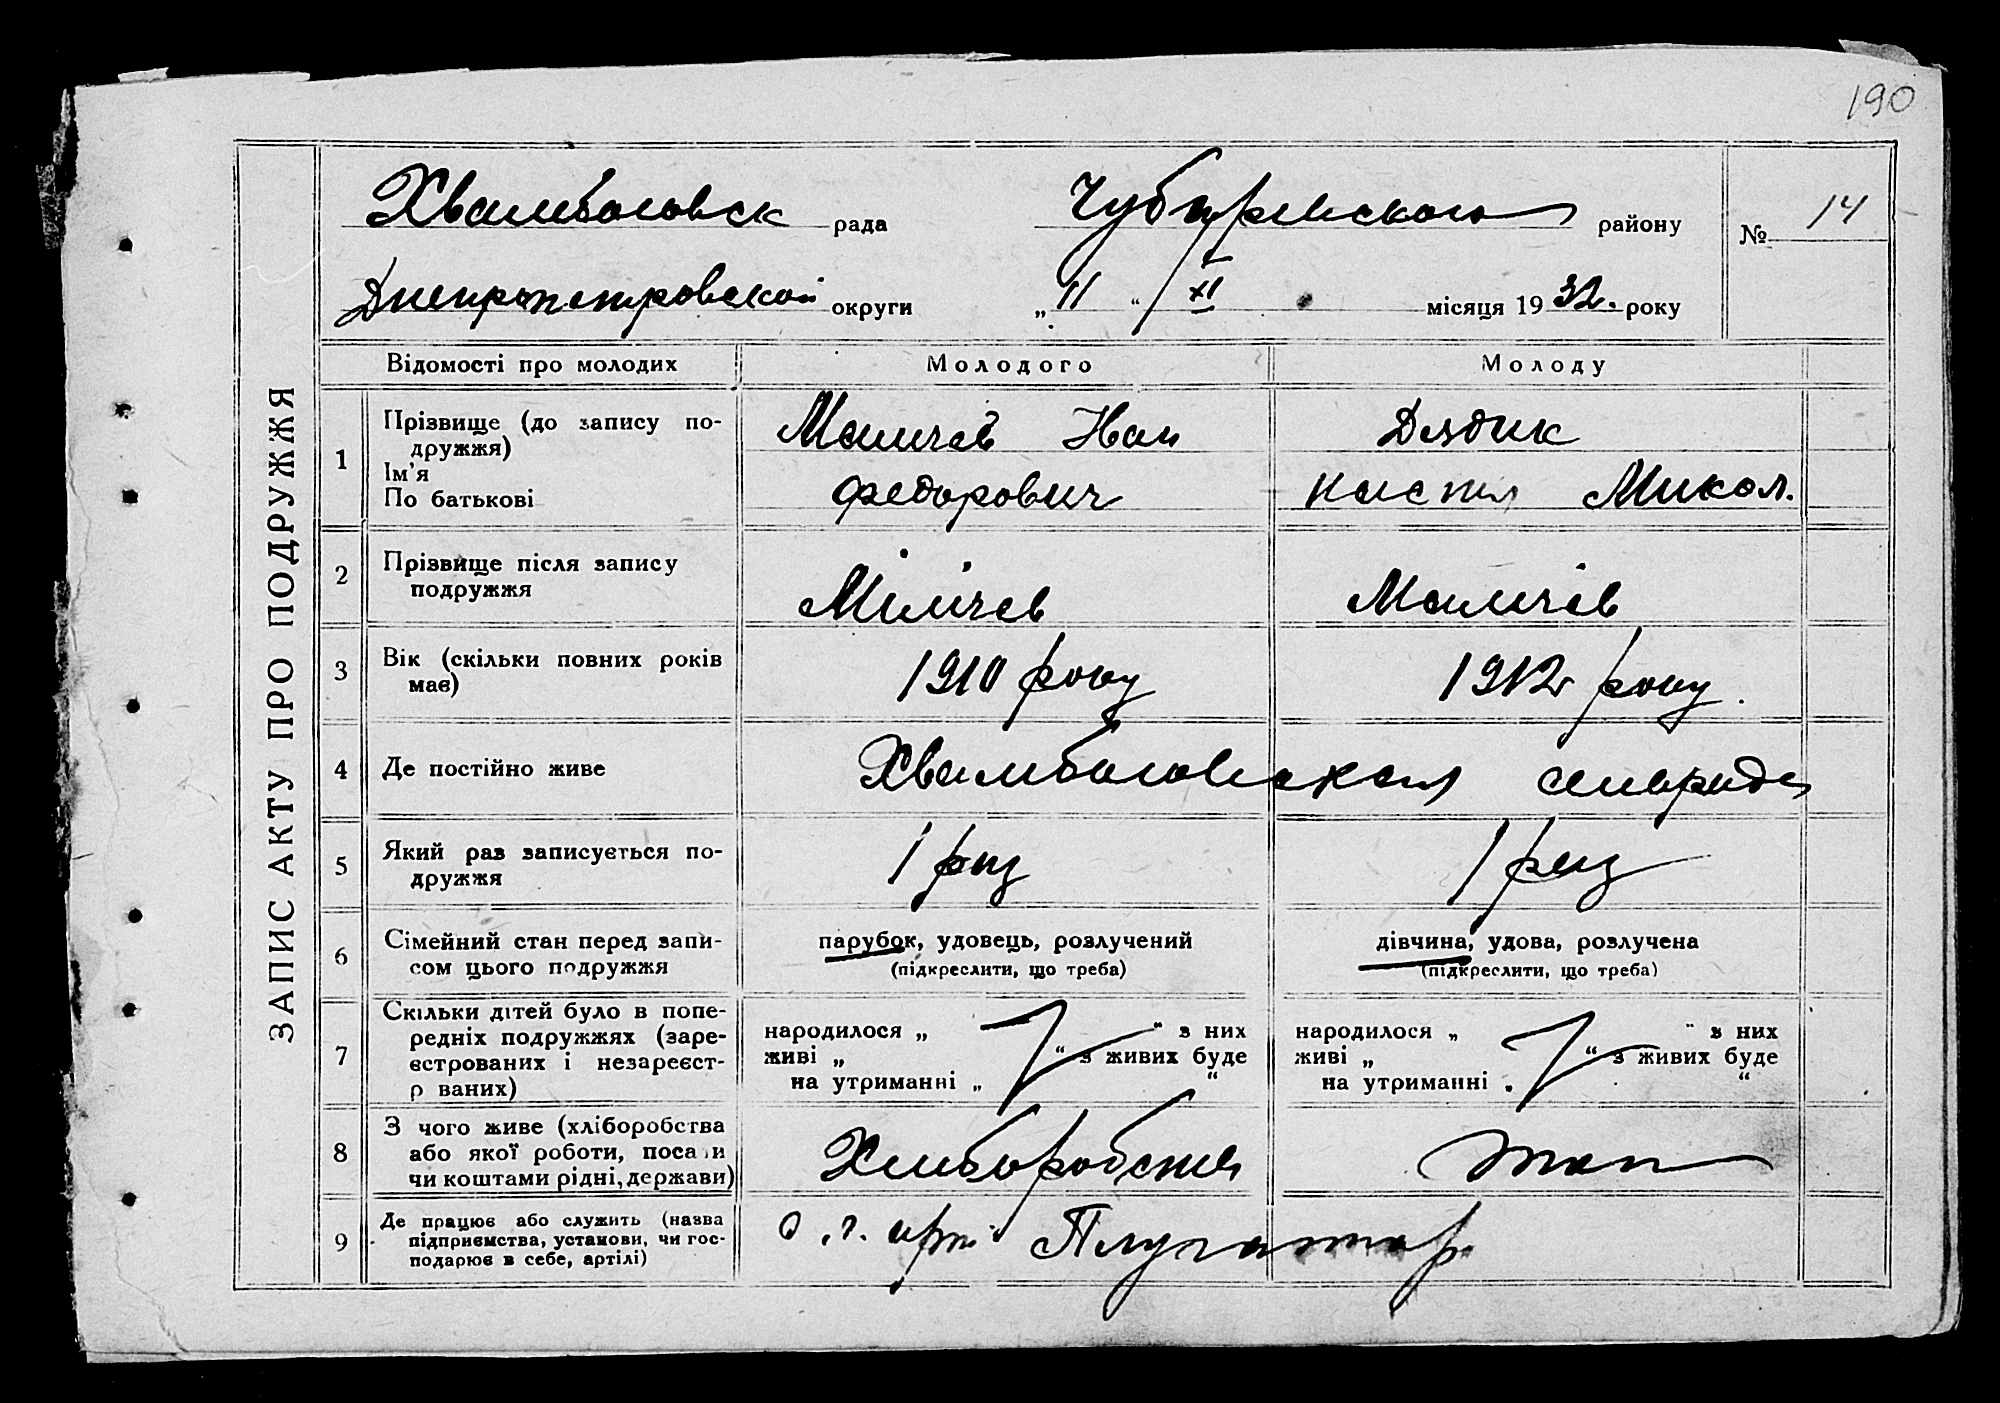 190
ЗАПИС АКТУ ПРО ПОДРУЖЖЯ
рада Чубаревского району № 14
Днепропетровской округи „ 11 “ / XI місяця 1932. року
Відомості про молодих Молодого Молоду
1 Прізвище (до запису по-
дружжя)
Ім'я
По батькові
Иван
Федорович
Дядик
Микол.
2 Прізвище після запису
подружжя
Мілічев
3 Вік (скільки повних років
має)
1910 року 1912 року.
4 Де постійно живе
5 Який раз записується по-
дружжя
1 раз 1 раз
6 Сімейний стан перед запи-
сом цього подружжя
парубок, удовець, розлучений
(підкреслити, що треба)
дівчина, удова, розлучена
(підкреслити, що треба)
7 Скільки дітей було в попе-
редніх подружжях (заре-
єстрованих і незареєст-
р ваних)
народилося „ “ з них
живі „ “ з живих буде
на утриманні „ “
народилося „ “ з них
живі „ “ з живих буде
на утриманні „ “
8 З чого живе (хліборобства
або якої роботи, поса и
чи коштами рідні, держави)
9 Де працює або служить (назва
підприємства, установи, чи гос-
подарює в себе, артілі)
Плугатар